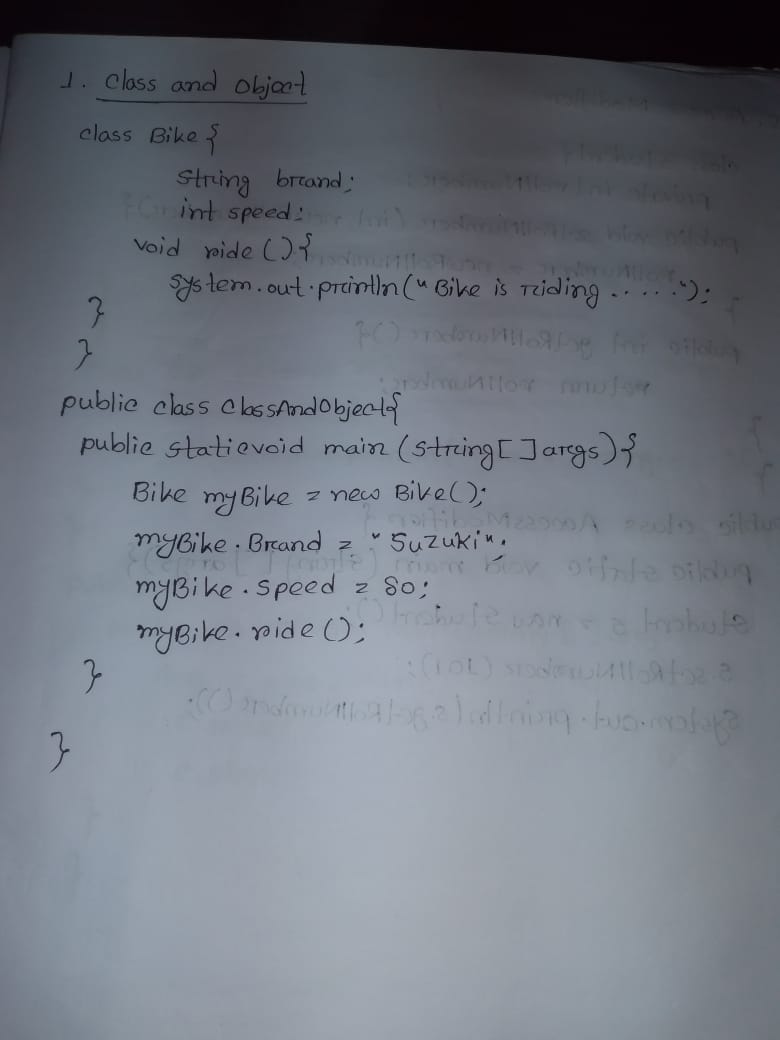 1. Class and Object
class Bike {
String brand;
int speed;
void ride () {
System.out.println(" Bike is riding . . . . .");
}
}
public class ClassAndObject{
public static void main (String[ ] args) {
Bike myBike = new Bike();
myBike.Brand = "Suzuki";
myBike.speed = 80;
myBike.ride ();
}
}